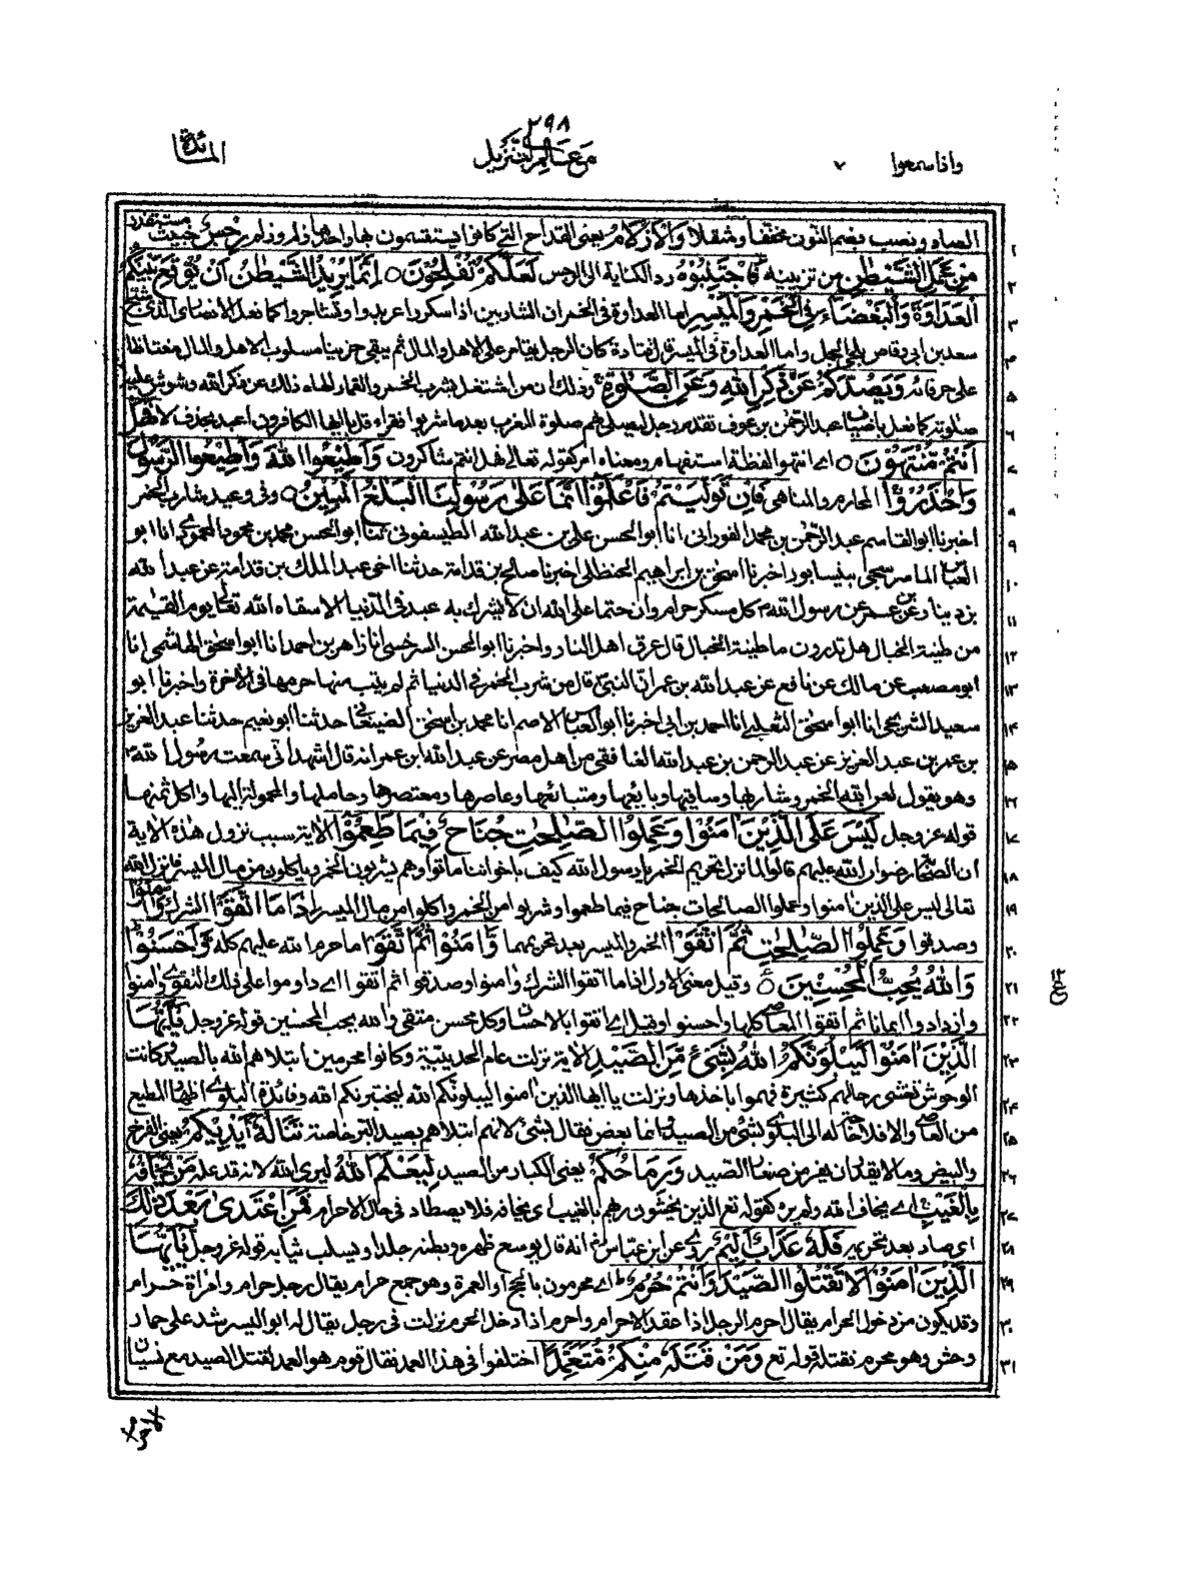 ٢٩٨
واذا سمعوا ٧
معالم التنزيل
المائدة
١ الصاد ونصب بضم النون مخففا ومثقلا وَالْاَزْلَامُ يعنى القداح التي كانوا يستقسمون بها واحدها زلم وزلم رِجْسٌ خبيث مستقذر
٢ مِّنْ عَمَلِ الشَّيْطٰنِ من تزيينه فَاجْتَنِبُوْهُ رد الكناية الى الرجس لَعَلَّكُمْ تُفْلِحُوْنَ ○ اِنَّمَا يُرِيْدُ الشَّيْطٰنُ اَنْ يُّوْقِعَ بَيْنَكُمُ
٣ الْعَدَاوَةَ وَالْبَغْضَآءَ فِى الْخَمْرِ وَالْمَيْسِرِ اما العداوة فى الخمر ان الشاربين اذا سكروا عربدوا وتشاجروا كما فعل الانصاى الذى شج
٤ سعد بن ابى وقاص بلحى الجمل واما العداوة فى الميسر قال قتادة كان الرجل يقامر على الاهل والمال ثم يبقى حزينا مسلوب الاهل والمال مغتاظا
٥ على حرفائه وَيَصُدَّكُمْ عَنْ ذِكْرِ اللّٰهِ وَعَنِ الصَّلٰوةِ وذلك ان من اشتغل بشرب الخمر والقمار الهاه ذلك عن ذكر الله وشوش عليه
٦ صلوته كما فعل باضياف عبد الرحمٰن بن عوف تقدم رجل ليصلى بهم صلوة المغرب بعد ما شربوا فقرا قل يا ايها الكافرون اعبد بحذف لا فَهَلْ
٧ اَنْتُمْ مُّنْتَهُوْنَ ○ اى انتهوا لفظة استفهام ومعناه امر كقوله تعالى فهل انتم شاكرون وَاَطِيْعُوا اللّٰهَ وَاَطِيْعُوا الرَّسُوْلَ
٨ وَاحْذَرُوْا المحارم والمناهى فَاِنْ تَوَلَّيْتُمْ فَاعْلَمُوْا اَنَّمَا عَلٰى رَسُوْلِنَا الْبَلٰغُ الْمُبِيْنُ ○ وفى وعيد شارب الخمر
٩ اخبرنا ابو القاسم عبد الرحمٰن بن محمد الفورانى انا ابو الحسن على بن عبد الله الطيسفونى ثنا ابو الحسن محمد بن محمود المحمودى انا ابو
١٠ العباس الماسرسجى بنيسابور اخبرنا اسحٰق بن ابراهيم الحنظلى اخبرنا صالح بن قدامة حدثنا اخى عبد الملك بن قدامة عن عبد الله
١١ بن دينار عن ابن عمر عن رسول الله ﷺ كل مسكر حرام وان حتما على الله ان لا يشرك به عبد فى الدنيا الا سقاه الله تعالى يوم القيٰمة
١٢ من طينة الخبال هل تدرون ما طينة الخبال قال عرق اهل النار واخبرنا ابو الحسن السرخسى انا زاهر بن احمد انا ابو اسحٰق الهاشمى انا
١٣ ابو مصعب عن مالك عن نافع عن عبد الله بن عمر ان النبى ﷺ قال من شرب الخمر فى الدنيا ثم لم يتب منها حرمها فى الاخرة واخبرنا ابو
١٤ سعيد الشريحى انا ابو اسحٰق الثعلبى انا احمد بن ابى اخبرنا ابو العباس الاصم انا محمد بن اسحٰق الصنعانى حدثنا ابو نعيم حدثنا عبد العزيز
١٥ بن عمر بن عبد العزيز عن عبد الرحمن بن عبد الله الغافقى من اهل مصر عن عبد الله ابن عمر انه قال اشهد انى سمعت رسول الله ﷺ
١٦ وهو يقول لعن الله الخمر وشاربها وساقيها وبايعها ومبتائعها وعاصرها ومعتصرها وحاملها والمحمولة اليها واكل ثمنها
١٧ قوله عز وجل لَيْسَ عَلَى الَّذِيْنَ اٰمَنُوْا وَعَمِلُوا الصّٰلِحٰتِ جُنَاحٌ فِيْمَا طَعِمُوْٓا الاية سبب نزول هٰذه الاية
١٨ ان الصحابة رضوان الله عليهم قالوا لما نزل تحريم الخمر يا رسول الله كيف باخواننا ماتوا وهم يشربون الخمر وياكلون من مال الميسر فانزل الله
١٩ تعالى ليس على الذين اٰمنوا وعملوا الصالحات جناح فيما طعموا وشربوا من الخمر واكلوا من مال الميسر اِذَا مَا اتَّقَوْا الشرك وَّاٰمَنُوْا
٢٠ وصدقوا وَعَمِلُوا الصّٰلِحٰتِ ثُمَّ اتَّقَوْا الخمر والميسر بعد تحريمهما وَّاٰمَنُوْا ثُمَّ اتَّقَوْا ما حرم الله عليهم كله وَّاَحْسَنُوْا
٢١ وَاللّٰهُ يُحِبُّ الْمُحْسِنِيْنَ ○ وقيل معنى الاول اذا ما اتقوا الشرك واٰمنوا وصدقوا ثم اتقوا اى داوموا على ذلك التقوى واٰمنوا
٢٢ وازدادوا ايمانا ثم اتقوا المعاصى كلها واحسنوا وقيل اى اتقوا بالاحسان وكل محسن متقى والله يحب المحسنين قوله عز وجل يٰٓاَيُّهَا
٢٣ الَّذِيْنَ اٰمَنُوْا لَيَبْلُوَنَّكُمُ اللّٰهُ بِشَىْءٍ مِّنَ الصَّيْدِ الاية نزلت عام الحديبية وكانوا محرمين ابتلاهم الله بالصيد وكانت
٢٤ الوحوش تغشى رحالهم كثيرة فهموا باخذها ونزلت يا ايها الذين اٰمنوا ليبلونكم الله ليختبرنكم الله وفائدة البلوى اظهار المطيع
٢٥ من العاصى والا فلا حاجة له الى البلوى بشىء من الصيد وانما بعض فقال بشىء لانهم ابتلاهم بصيد البر خاصة تَنَالُهٗٓ اَيْدِيْكُمْ يعنى الفرخ
٢٦ والبيض وما لا يقدر ان يفر من صغار الصيد وَرِمَاحُكُمْ يعنى الكبار من الصيد لِيَعْلَمَ اللّٰهُ ليرى الله لانه قد علمه مَنْ يَّخَافُهٗ
٢٧ بِالْغَيْبِ اى يخاف الله ولم يره كقوله تع الذين يخشون ربهم بالغيب اى يخافه فلا يصطاد فى حال الاحرام فَمَنِ اعْتَدٰى بَعْدَ ذٰلِكَ
٢٨ اى صاد بعد تحريمه فَلَهٗ عَذَابٌ اَلِيْمٌ روى عن ابن عباس انه قال يوسع ظهره وبطنه جلدا ويسلب ثيابه قوله عز وجل يٰٓاَيُّهَا
٢٩ الَّذِيْنَ اٰمَنُوْا لَا تَقْتُلُوا الصَّيْدَ وَاَنْتُمْ حُرُمٌ اى محرمون بالحج او العمرة وهو جمع حرام يقال رجل حرام وامراة حرام
٣٠ وقد يكون من دخول الحرام يقال احرم الرجل اذا عقد الاحرام واحرم اذا دخل الحرم نزلت فى رجل يقال له ابو اليسر شد على حمار
٣١ وحش وهو محرم فقتله قوله تع وَمَنْ قَتَلَهٗ مِنْكُمْ مُّتَعَمِّدًا اختلفوا فى هذا العمد فقال قوم هو العمد لقتل الصيد مع نسيان